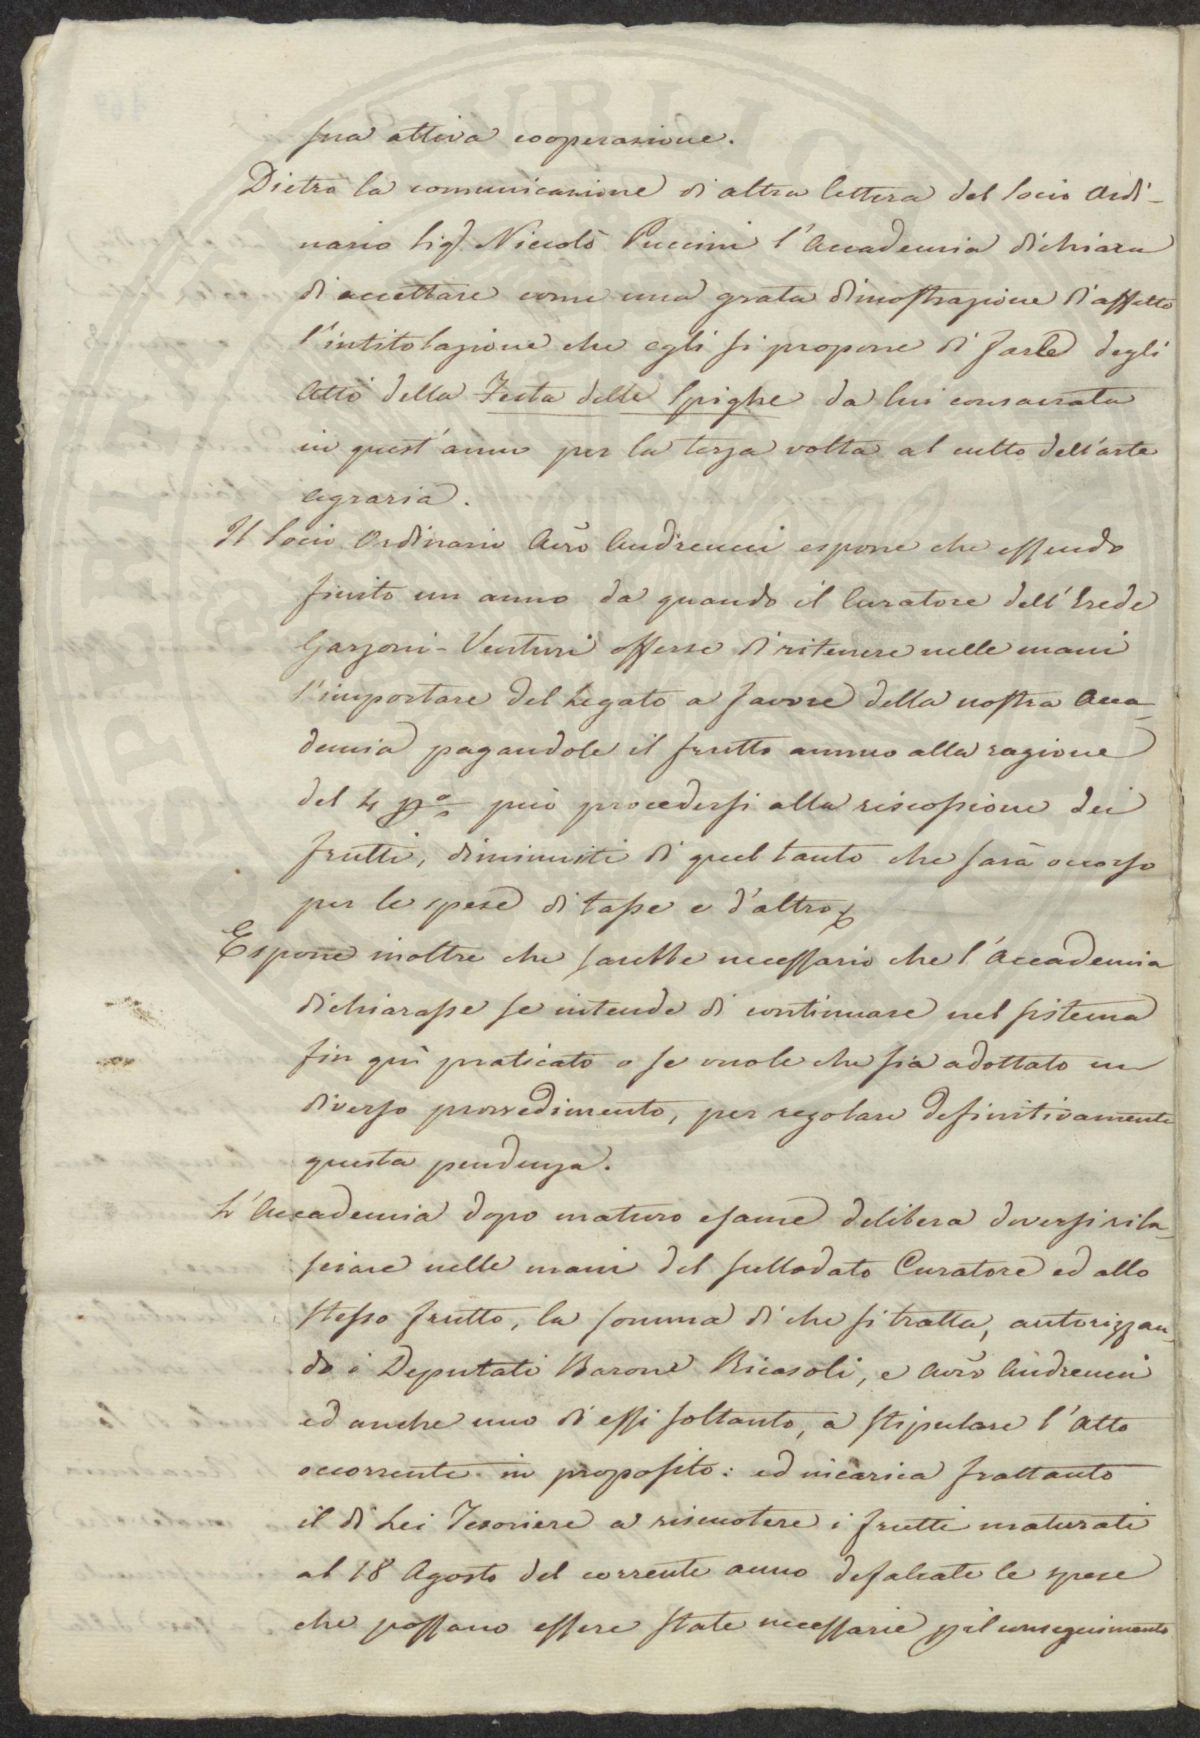 sua attiva cooperazione.
Dietro la comunicazione di altra lettera del Socio Ordi-
nario Sig.r Niccolò Puccini l'Accademia dichiara
di accettare come una grata dimostrazione d'affetto
l'intitolazione che egli si propone di farle degli
Atti della Festa delle Spighe da lui consacrata
in quest'anno per la terza volta al culto dell'arte
agraria.
Il Socio Ordinario Avvo Andreucci espone che essendo
finito un anno da quando il Curatore dell'Erede
Garzoni-Venturi offerse di ritenere nelle mani
l'importare del Legato a favore della nostra Acca-
demia pagandole il frutto annuo alla ragione
del 4 p% può procedersi alla riscossione dei
frutti, diminuiti di quel tanto che sarà occorso
per le spese di tasse e d'altro
Espone inoltre che sarebbe necessario che l'Accademia
dichiarasse se intende di continuare nel sistema
fin quì praticato o se vuole che sia adottato un
diverso provvedimento, per regolare definitivamente
questa pendenza.
L'Accademia dopo maturo esame delibera doversi rila-
sciare nelle mani del sullodato Curatore ed allo
stesso frutto, la somma di che si tratta, autorizzan-
do i Deputati Barone Ricasoli, e Avvo Andreucci
ed anche uno di essi soltanto, a stipulare l'Atto
occorrente in proposito: ed incarica frattanto
il di Lei Tesoriere a riscuotere i frutti maturati
al 18 Agosto del corrente anno defalcate le spese
che possano essere state necessarie pel conseguimento